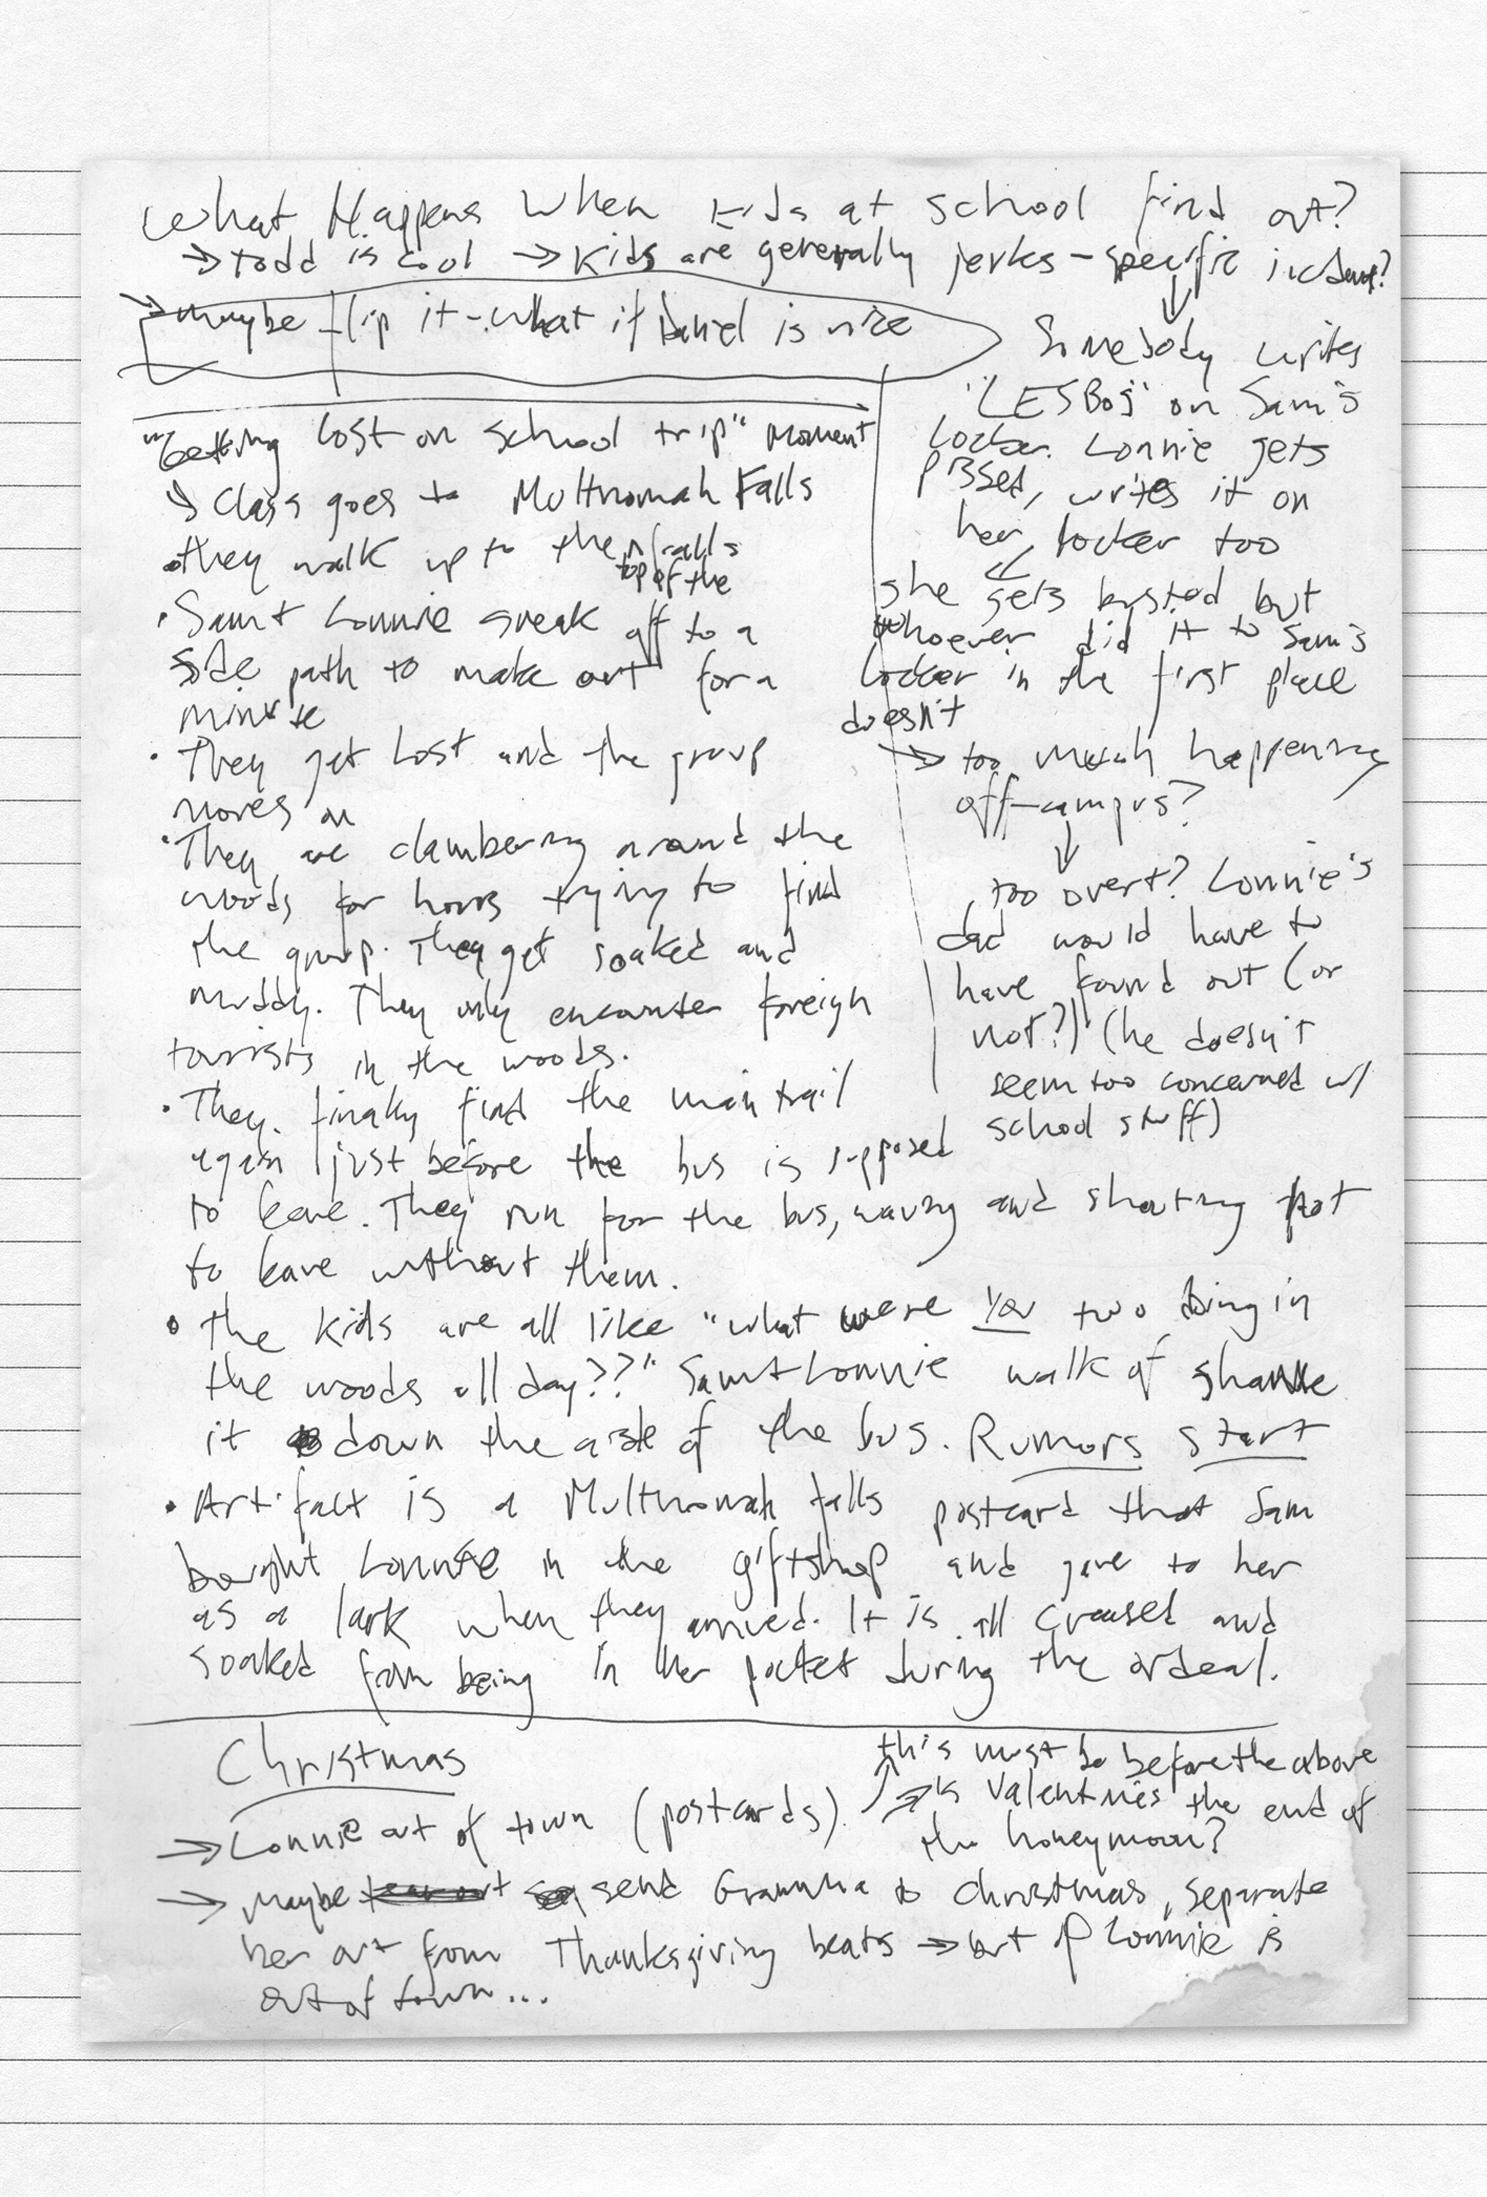 What Happens When kids at school find out?
→ todd is cool → kids are generally jerks - specific incident?
→ maybe flip it - what if Daniel is nice
Somebody writes
"LESBOS" on Sam's
locker. Lonnie gets
pissed, writes it on
her locker too
she gets busted but
whoever did it to Sam's
locker in the first place
doesn't
→ too much happening
off-campus?
too overt? Lonnie's
dad would have to
have found out (or
not?) (he doesn't
seem too concerned w/
school stuff)
"Getting lost on school trip" moment
Class goes to Multnomah Falls
• they walk up to the top of the falls
• Sam + Lonnie sneak off to a
side path to make out for a
minute
• They get lost and the group
moves on
• They are clambering around the
woods for hours trying to find
the group. They get soaked and
muddy. They only encounter foreign
tourists in the woods.
• They finally find the main trail
again just before the bus is supposed
to leave. They run for the bus, waving and shouting not
to leave without them.
• the kids are all like "what were you two doing in
the woods all day??" Sam + Lonnie walk of shame
it down the aisle of the bus. Rumors start
• Artifact is a Multnomah falls postcard that Sam
bought Lonnie in the giftshop and gave to her
as a lark when they arrived. It is all creased and
soaked from being in her pocket during the ordeal.
Christmas
this must be before the above
→ is Valentines the end of
the honeymoon?
→ Lonnie out of town (postcards).
→ Maybe send Gramma to Christmas, separate
her out from Thanksgiving beats → but if Lonnie is
out of town...